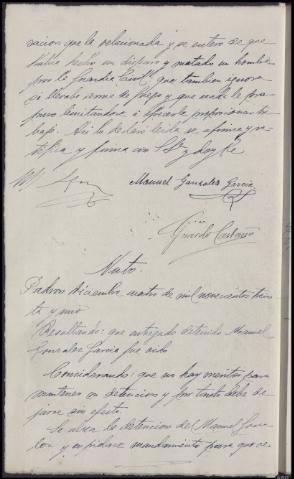 sacion que la relacionada y se entero de que
habia hecho un disparo y matado un hombre
por la Guardia Civil, que tambien ignora
si llevaba arma de fuego y que nadie le pro
puso limitandose a ofrecerle proporcionar tra
bajo. Asi lo declaró leida se afirma y ra
tifica y firma con S. Sª y doy fe
Manuel Gonzalez Garcia
Guardo
Auto
Padron diciembre cuatro de mil novecientos trein
ta y uno
Resultando: que entregado detenido Manuel
Gonzalez Garcia fue oido
Considerando: que no hay meritos para
mantener su detencion y por tanto debe de
jarse sin efecto
Se alza la detencion del Manuel Gonza
lez y expidase mandamiento para que ce